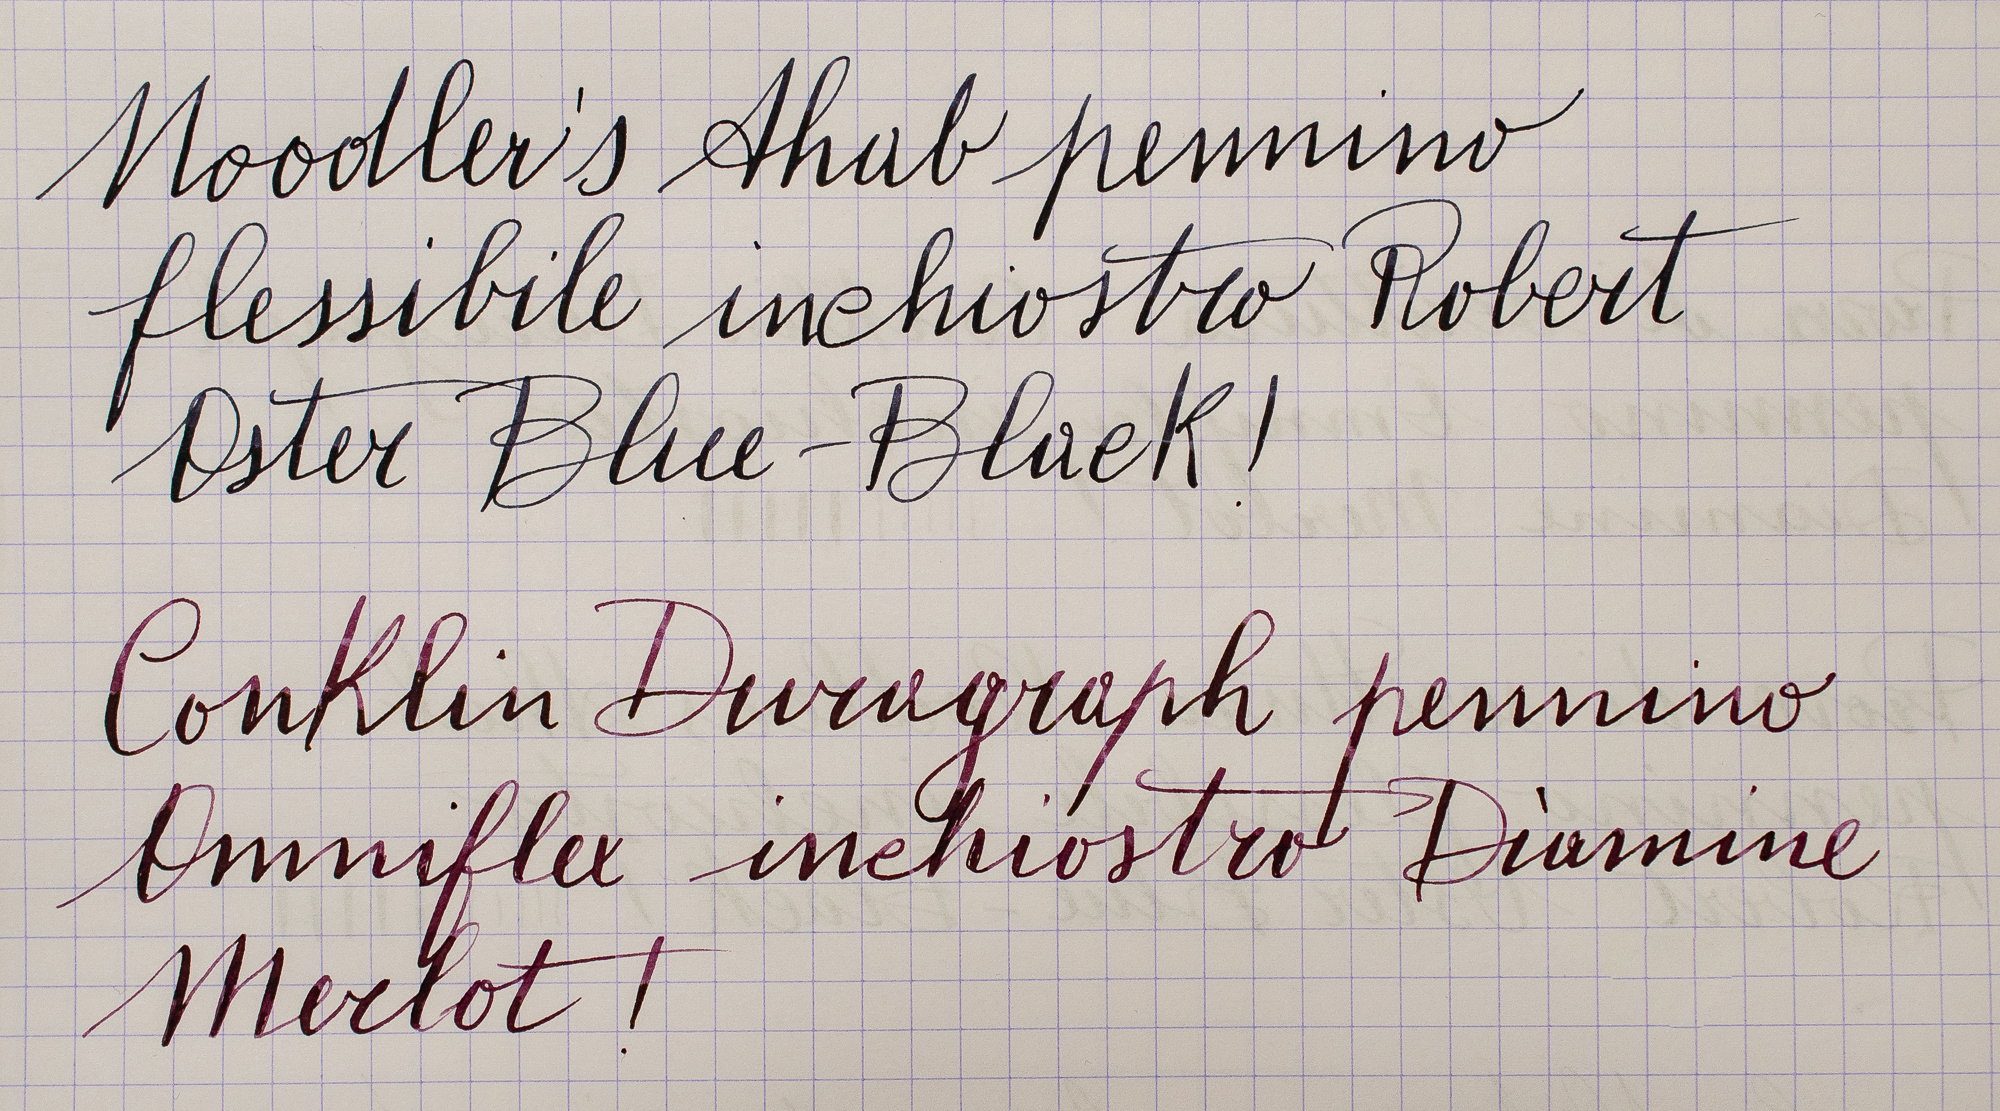 Noodler's Ahab pennino
flessibile inchiostro Robert
Oster Blue-Black!
Conklin Duragraph pennino
Omniflex inchiostro Diamine
Merlot!